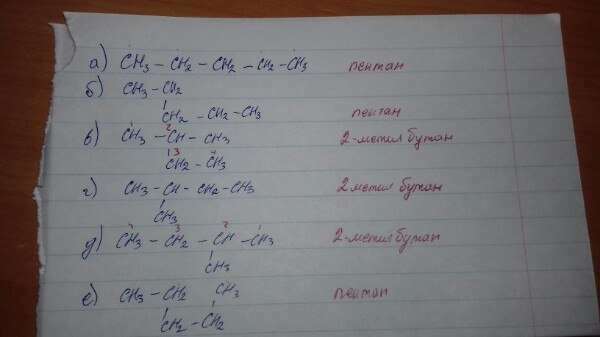 а) CH3 – CH2 – CH2 – CH2 – CH3 пентан
б) CH3 – CH2
CH2 – CH2 – CH3 пентан
в) CH3 – CH – CH3 2-метил бутан
CH2 – CH3
г) CH3 – CH – CH2 – CH3 2 метил бутан
CH3
д) CH3 – CH2 – CH – CH3 2-метил бутан
CH3
е) CH3 – CH2 CH3 пентан
CH2 – CH2